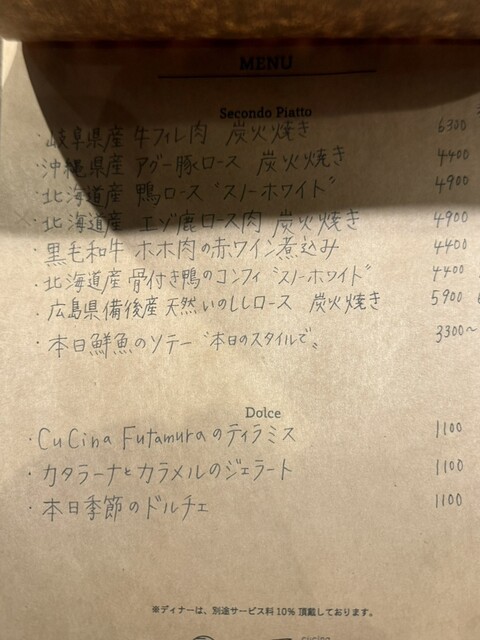 MENU
Secondo Piatto
・岐阜県産 牛フィレ肉 炭火焼き 6300
・沖縄県産 アグー豚ロース 炭火焼き 4400
・北海道産 鴨ロース "スノーホワイト" 4900
・北海道産 エゾ鹿ロース肉 炭火焼き 4900
・黒毛和牛 ホホ肉の赤ワイン煮込み 4400
・北海道産 骨付き鴨のコンフィ "スノーホワイト" 4400
・広島県備後産 天然いのししロース 炭火焼き 5900
・本日鮮魚のソテー "本日のスタイルで" 3300〜
Dolce
・CuCina Futamuraのティラミス 1100
・カタラーナとカラメルのジェラート 1100
・本日季節のドルチェ 1100
※ディナーは、別途サービス料10%頂戴しております。